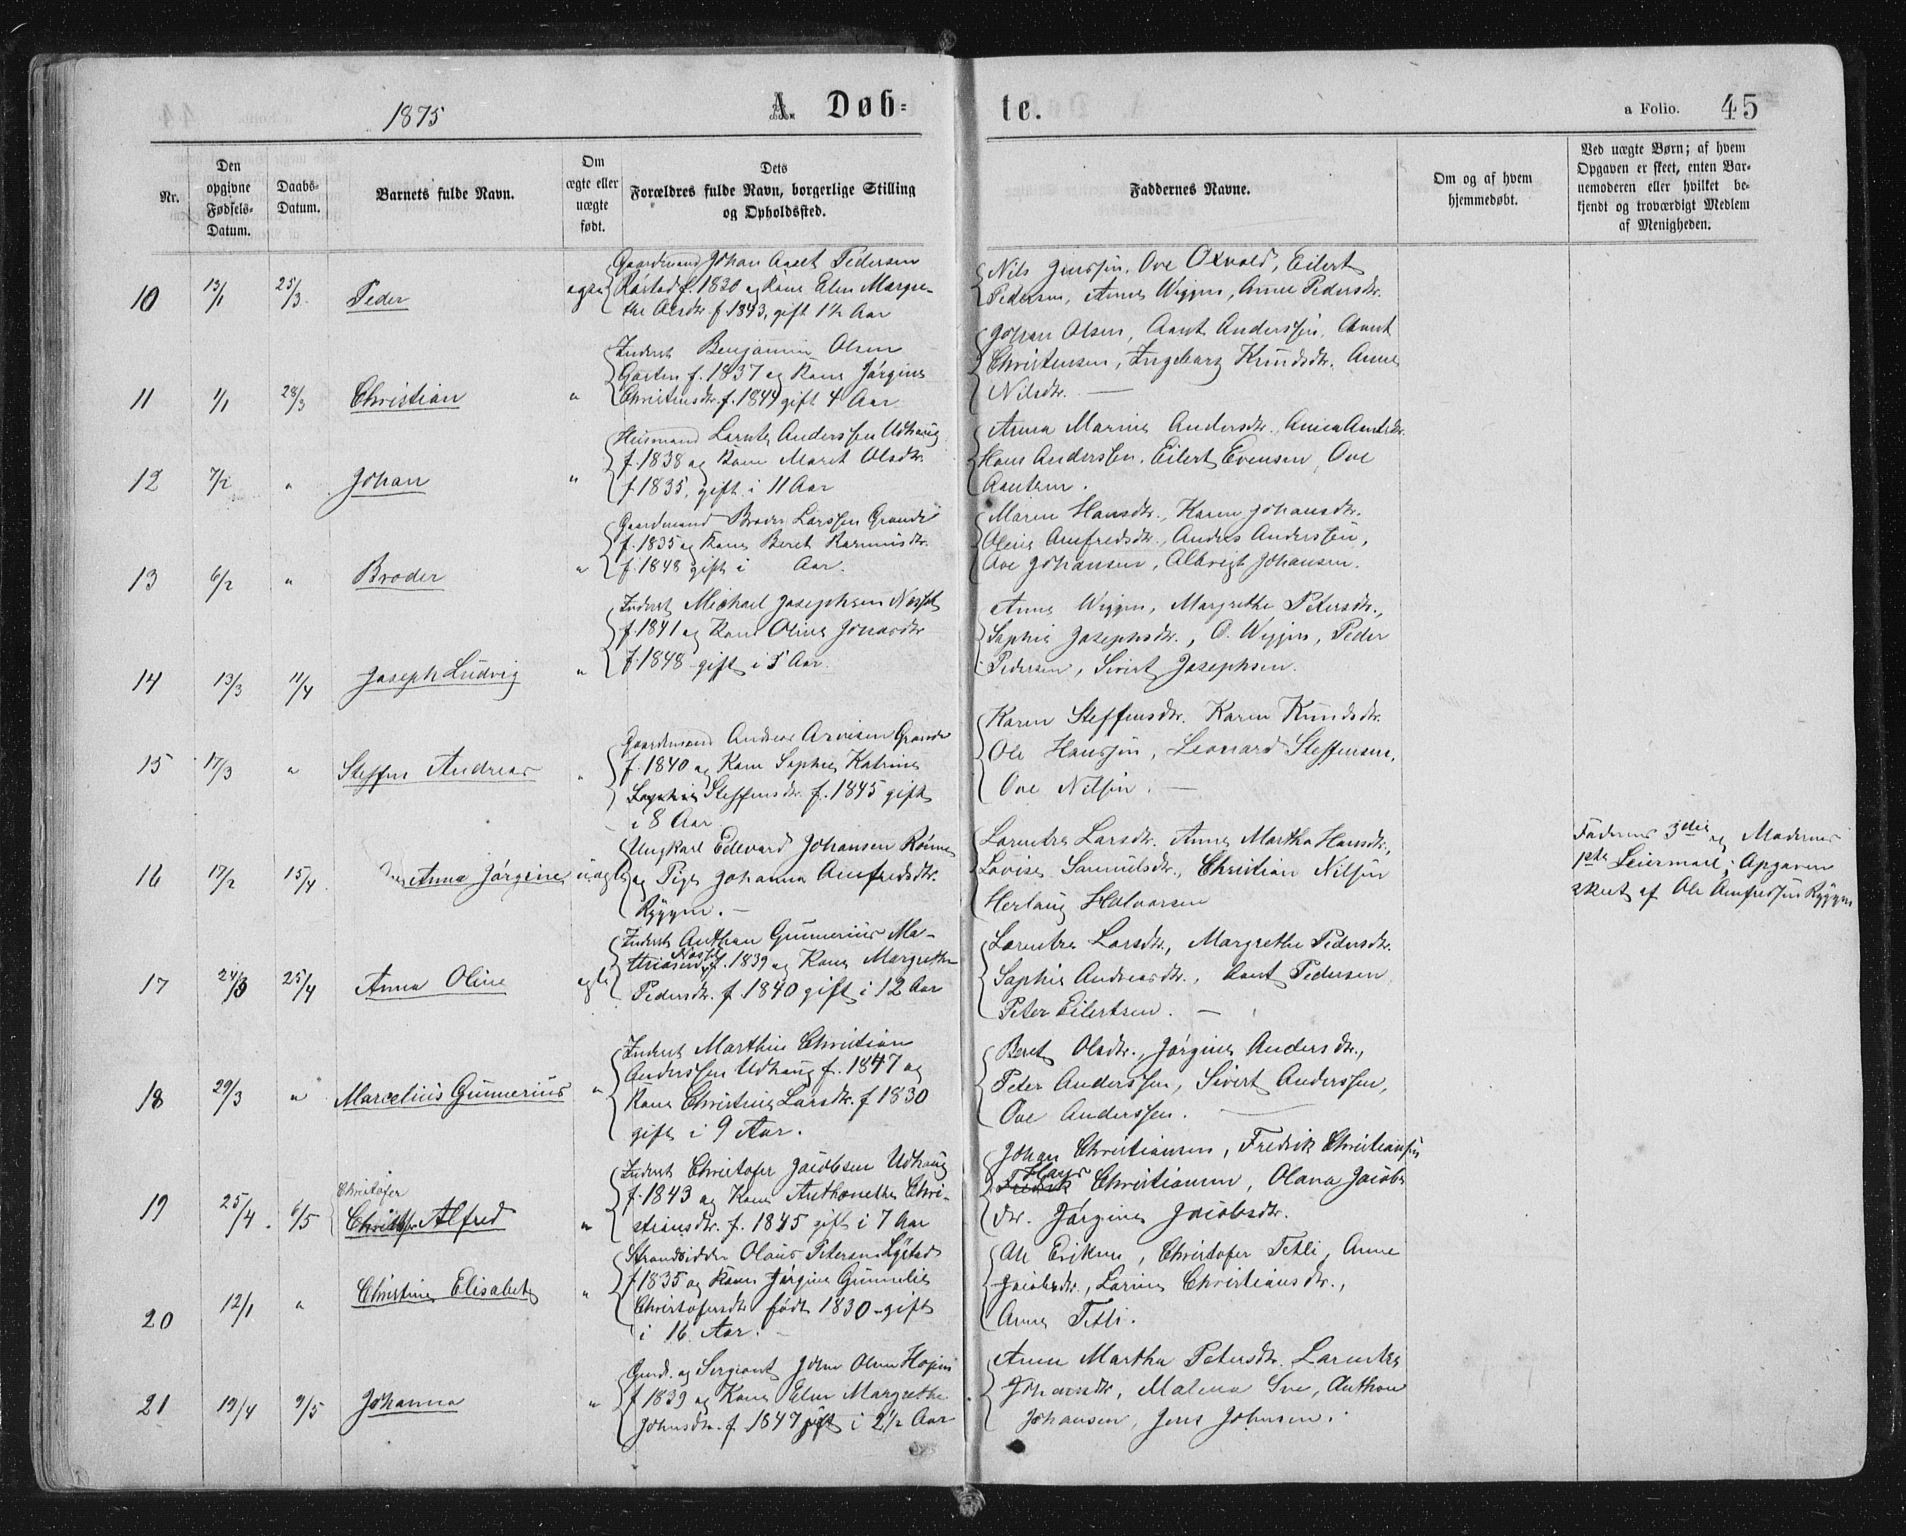 1875
A. Døb=
te.
a Folio. 45
Nr.
Den opgivne Fødsels-Datum.
Daabs-Datum.
Barnets fulde Navn.
Om ægte eller uægte født.
Dets Forældres fulde Navn, borgerlige Stilling og Opholdssted.
Faddernes Navne.
Om og af hvem hjemmedøbt.
Ved uægte Børn; af hvem
Opgaven er skeet, enten Bar-
nemoderen eller hvilket be-
kjendt og troværdigt Medlem
af Menigheden.
10 13/1 25/3 Peder
Gaardmand Johan Aaset Pedersen
f. 1820 og Kone Elen Margre-
the Olsdtr f 1843, gift 1½ Aar
Nils Jenssøn, Ove Oxvold, Eilert
Pedersen, Anne Wiggen, Anne Pedersdtr.
11 1/1 28/3 Christian "
Inderst Benjamin Olsen
Garten f. 1837 og Kone Jørgine
Christensdtr. f. 1844 gift 4 Aar
Johan Olsen, Aant Anderssøn, Aant
Christensen, Ingebarg Knudsdtr. Anne
Nilsdtr. —
12 7/2 " Johan "
Husmand Larnts Anderssen Udhaug
f. 1838 og Kone Maret Olsdtr.
f. 1835, gift i 11 Aar
Anna Marine Andersdtr.
Hans Anderssen, Eilert Evensen, Ove
Aantsen.
13 6/2 " Broder "
Gaardmand Broder Larssen Grande
f. 1835 og Kone Beret Rasmusdtr.
f. 1848 gift i Aar.
Maren Hansdtr., Karen Johansdtr.
Oline Arnfredsdtr., Anders Anderssen,
Ove Johansen, Albrigt Johansen.
14 13/3 11/4 Joseph Ludvig "
Inderst Michael Josephsen
f. 1841 og Kone Oline Jonasdtr
f. 1848 gift i 5 Aar.
Anne Wiggen, Margrethe Petersdtr.,
Sophie Josephsdtr., O. Wiggen, Peder
Pedersen, Sivert Josephsen.
15 17/3 " Steffen Andreas "
Gaardmand Andreas Arvesen Grande
f. 1840 og Kone Sophie Katrine
Steffensdtr. f. 1845 gift
i 8 Aar
Karen Steffensdtr. Karen Knudsdtr.
Ole Hanssøn, Leonard Steffensen,
Ove Nilsøn. —
16 17/2 15/4 Anna Jørgine uægte
Ungkarl Edevard Johansen Rønne
og Pige Johanna Arnfredsdtr.
Ryggen. —
Larentze Larsdtr. Anne Martha Hansdtr.,
Lovise Samuelsdtr., Christian Nilsøn
Herlaug Halvorsen
Faderens 3die og Moderens
1ste Leiermaal; Opgaven
skeet af Ole Arnfredssøn Ryggen
17 24/3 25/4 Anna Oline ægte
Inderst Anthon Gunnerius Ma-
thiasen f. 1839 og Kone Margrethe
Pedersdtr. f 1840 gift i 12 Aar
Larentze Larsdtr, Margrethe Pedersdtr.
Sophie Andreasdtr., Aant Pedersen
Peter Eilertsen. —
18 29/3 " Marcelius Gunnerius "
Inderst Marthin Christian
Anderssen Udhaug f. 1847 og
Kone Christine Larsdtr. f 1830
gift i 9 Aar.
Beret Olsdtr., Jørgine Andersdtr.,
Peter Anderssen, Sivert Anderssen,
Ove Anderssen. —
19 25/4. 6/5 Christofer
Christofer Alfred "
Inderst Christofer Jacobsen Udhaug
f. 1843 og Kone Anthonette Chri-
stiansdtr. f. 1845 gift i 7 Aar
Johan Christiansen, Fredrik Christiansen
Hans
Fredrik Christiansen, Olava Jacobs
dtr. Jørgine Jacobsdtr.
20 12/1 " Christine Elisabet "
Strandsidder Olaus Petersen
f 1835 og Kone Jørgine Gunnelie
Christofersdtr født 1830 gift
i 16 Aar. —
Ole Eriksen, Christofer Tetli, Anne
Jacobsdtr., Larine Christiansdtr.,
Anne Tetli.
21 19/4 9/5 Johanna "
og Sergiant John Olsen
f 1839 og Kone Elen Margrethe
Johnsdtr. f 1847 gift i 2½ Aar
Anne Martha Petersdtr. Larentze
Johansdtr, Malena Sve, Anthon
Johansen, Jens Johnsen.